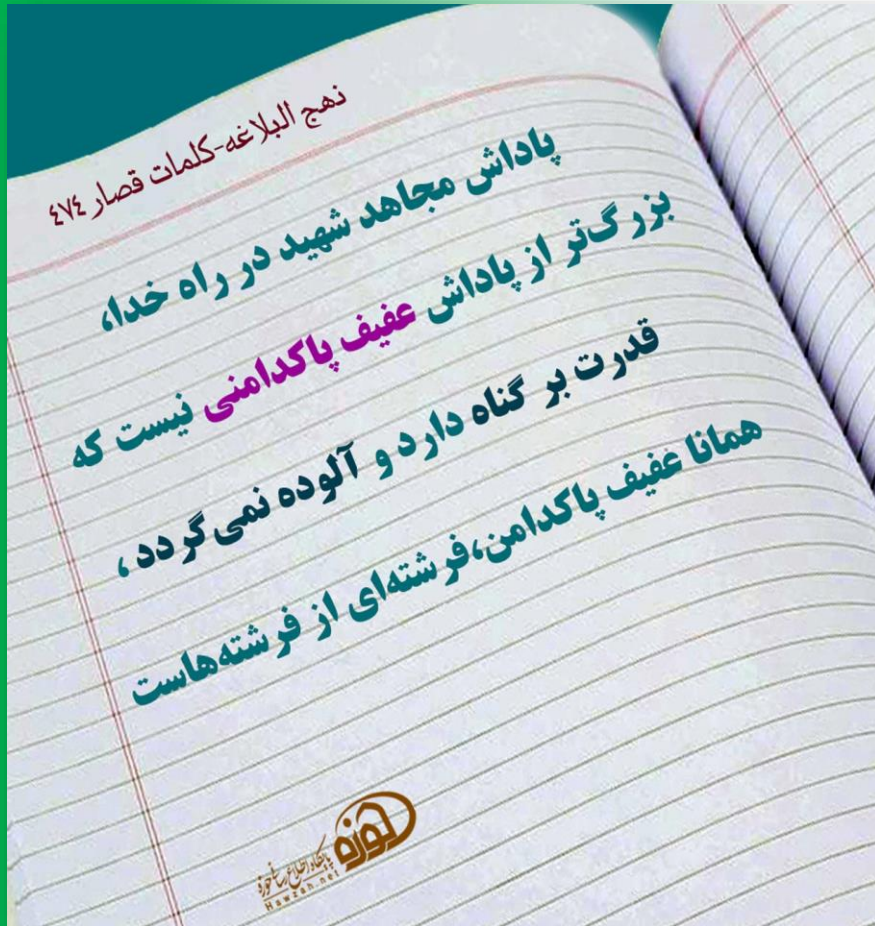 نهج البلاغه-کلمات قصار ٤٧٤
پاداش مجاهد شهید در راه خدا،
بزرگ‌تر از پاداش عفیف پاکدامنی نیست که
قدرت بر گناه دارد و آلوده نمی‌گردد ،
همانا عفیف پاکدامن،فرشته‌ای از فرشته‌هاست
حوزه
پایگاه اطلاع رسانی حوزه
Hawzah.net